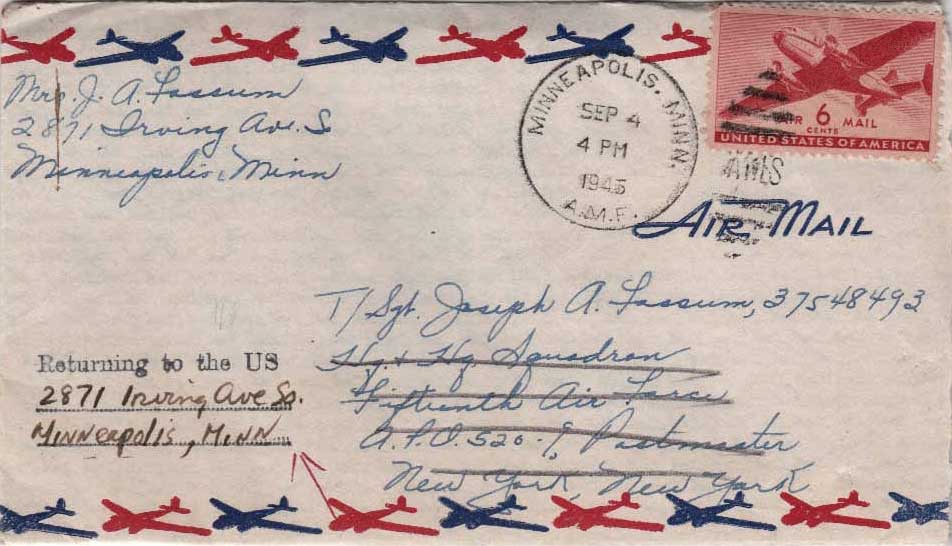 Mrs. J. A. Fassum
2871 Irving Ave. S
Minneapolis, Minn
MINNEAPOLIS. MINN.
SEP 4
4 PM
1945
A.M.F.
AIR 6 MAIL
CENTS
UNITED STATES OF AMERICA
AIR MAIL
T/Sgt. Joseph A. Fassum, 37548493
Hq. & Hq. Squadron
Fifteenth Air Force
A.P.O. 520 - % Postmaster
New York, New York
Returning to the US
2871 Irving Ave So.
Minneapolis, Minn